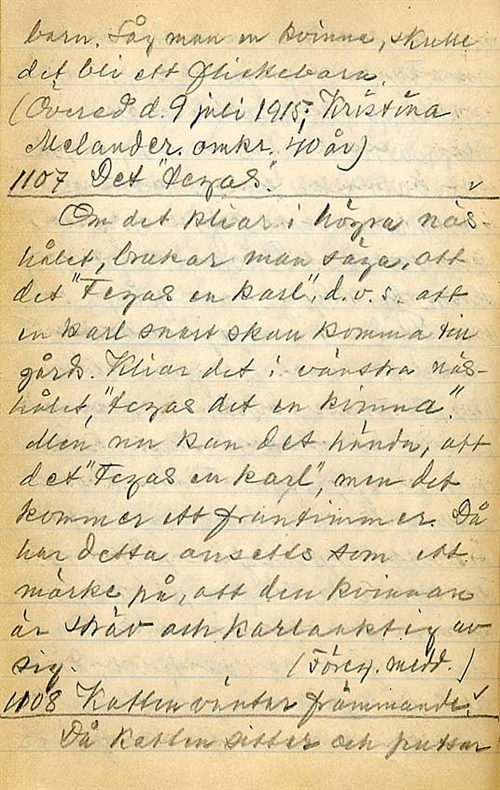 barn. Såg man en kvinna, skulle
det bli ett flickebarn.
(Övered d. 9 juli 1915; Kristina
Melander. omkr. 40 år)
1107 Det "tezas".
Om det kliar i högra näs-
hålet, brukar man säga, att
det "Tezas en karl", d.v.s. att
en karl snart skall komma till
gårds. Kliar det i vänstra näs-
hålet, "tezas det en kvinna".
Men nu kan det hända, att
det "Tezas en karl", men det
kommer ett fruntimmer. Då
har detta ansetts som ett
märke på, att den kvinnan
är sträv och karlaaktig av
sig (Föreg. medd.)
1108 Katten väntar främmande.
Då katten sitter och putsar